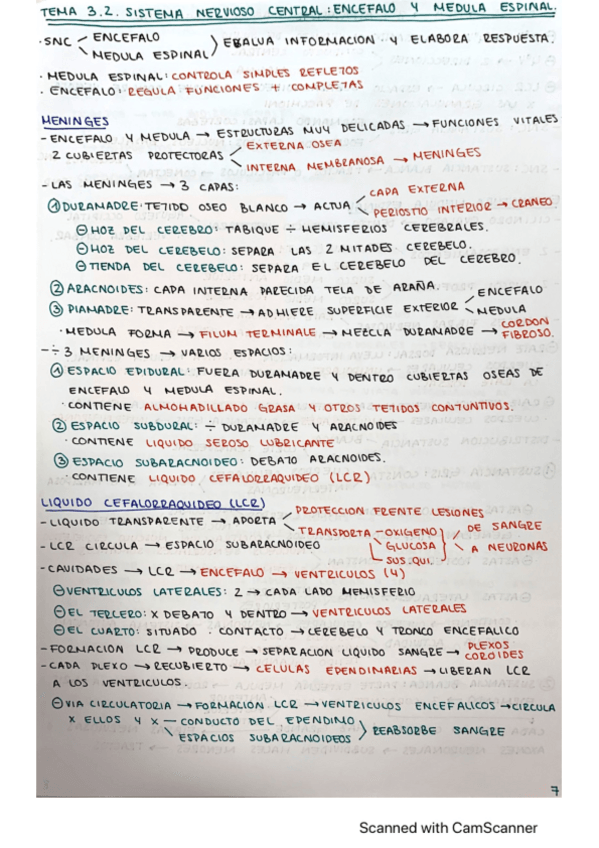 TEMA 3.2. SISTEMA NERVIOSO CENTRAL: ENCEFALO Y MEDULA ESPINAL.
·SNC ENCEFALO
MEDULA ESPINAL EVALUA INFORMACION Y ELABORA RESPUESTA.
· MEDULA ESPINAL: CONTROLA SIMPLES REFLEJOS
· ENCEFALO: REGULA FUNCIONES + COMPLEJAS
MENINGES
- ENCEFALO Y MEDULA → ESTRUCTURAS MUY DELICADAS → FUNCIONES VITALES
. 2 CUBIERTAS PROTECTORAS EXTERNA OSEA
INTERNA MEMBRANOSA → MENINGES
- LAS MENINGES → 3 CAPAS:
① DURAMADRE: TEJIDO OSEO BLANCO → ACTUA CAPA EXTERNA
PERIOSTIO INTERIOR → CRANEO.
⊖ HOZ DEL CEREBRO: TABIQUE ÷ HEMISFERIOS CEREBRALES.
⊖ HOZ DEL CEREBELO: SEPARA LAS 2 MITADES CEREBELO.
⊖ TIENDA DEL CEREBELO: SEPARA EL CEREBELO DEL CEREBRO.
② ARACNOIDES: CAPA INTERNA PARECIDA TELA DE ARAÑA.
③ PIAMADRE: TRANSPARENTE → ADHIERE SUPERFICIE EXTERIOR ENCEFALO
MEDULA
· MEDULA FORMA → FILUM TERMINALE → MEZCLA DURAMADRE → CORDON
FIBROSO.
- ÷ 3 MENINGES → VARIOS ESPACIOS:
① ESPACIO EPIDURAL: FUERA DURAMADRE Y DENTRO CUBIERTAS OSEAS DE
ENCEFALO Y MEDULA ESPINAL.
· CONTIENE ALMOHADILLADO GRASA Y OTROS TEJIDOS CONJUNTIVOS.
② ESPACIO SUBDURAL: ÷ DURAMADRE Y ARACNOIDES
· CONTIENE LIQUIDO SEROSO LUBRICANTE
③ ESPACIO SUBARACNOIDEO: DEBAJO ARACNOIDES.
· CONTIENE LIQUIDO CEFALORRAQUIDEO (LCR)
LIQUIDO CEFALORRAQUIDEO (LCR)
- LIQUIDO TRANSPARENTE → APORTA PROTECCION FRENTE LESIONES
TRANSPORTA OXIGENO DE SANGRE
- LCR CIRCULA → ESPACIO SUBARACNOIDEO GLUCOSA A NEURONAS
SUS. QUI.
- CAVIDADES → LCR → ENCEFALO → VENTRICULOS (4)
⊖ VENTRICULOS LATERALES: 2 → CADA LADO HEMISFERIO
⊖ EL TERCERO: X DEBAJO Y DENTRO → VENTRICULOS LATERALES
⊖ EL CUARTO: SITUADO : CONTACTO → CEREBELO Y TRONCO ENCEFALICO
- FORMACION LCR → PRODUCE → SEPARACION LIQUIDO SANGRE → PLEXOS
COROIDES
- CADA PLEXO → RECUBIERTO → CELULAS EPENDINARIAS → LIBERAN LCR
A LOS VENTRICULOS.
⊖ VIA CIRCULATORIA → FORMACION LCR → VENTRICULOS ENCEFALICOS → CIRCULA
X ELLOS Y X CONDUCTO DEL EPENDIMO
ESPACIOS SUBARACNOIDEOS REABSORBE SANGRE
7
Scanned with CamScanner